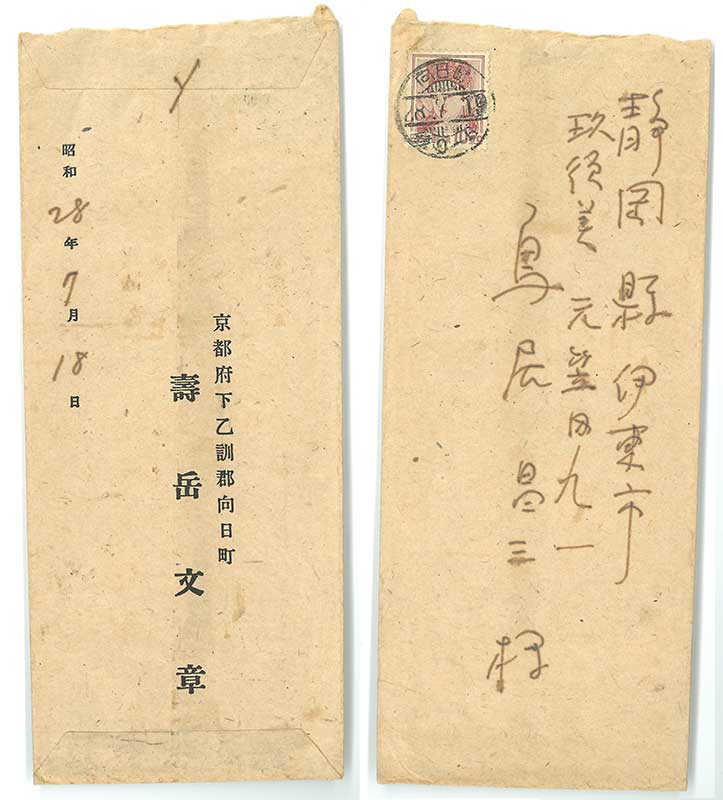 京都府下乙訓郡向日町
壽岳文章
昭和28年7月18日
〆
静岡縣伊東市
玖須美元笠田九一
鳥居昌三様
向日町
28.7.19